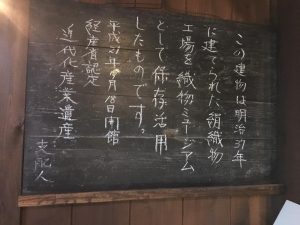 この建物は明治37年
に建てられた絹織物
工場を織物ミュージアム
として保存活用
したものです。
平成21年 月18日開館
経産省認定
近代化産業遺産
支配人